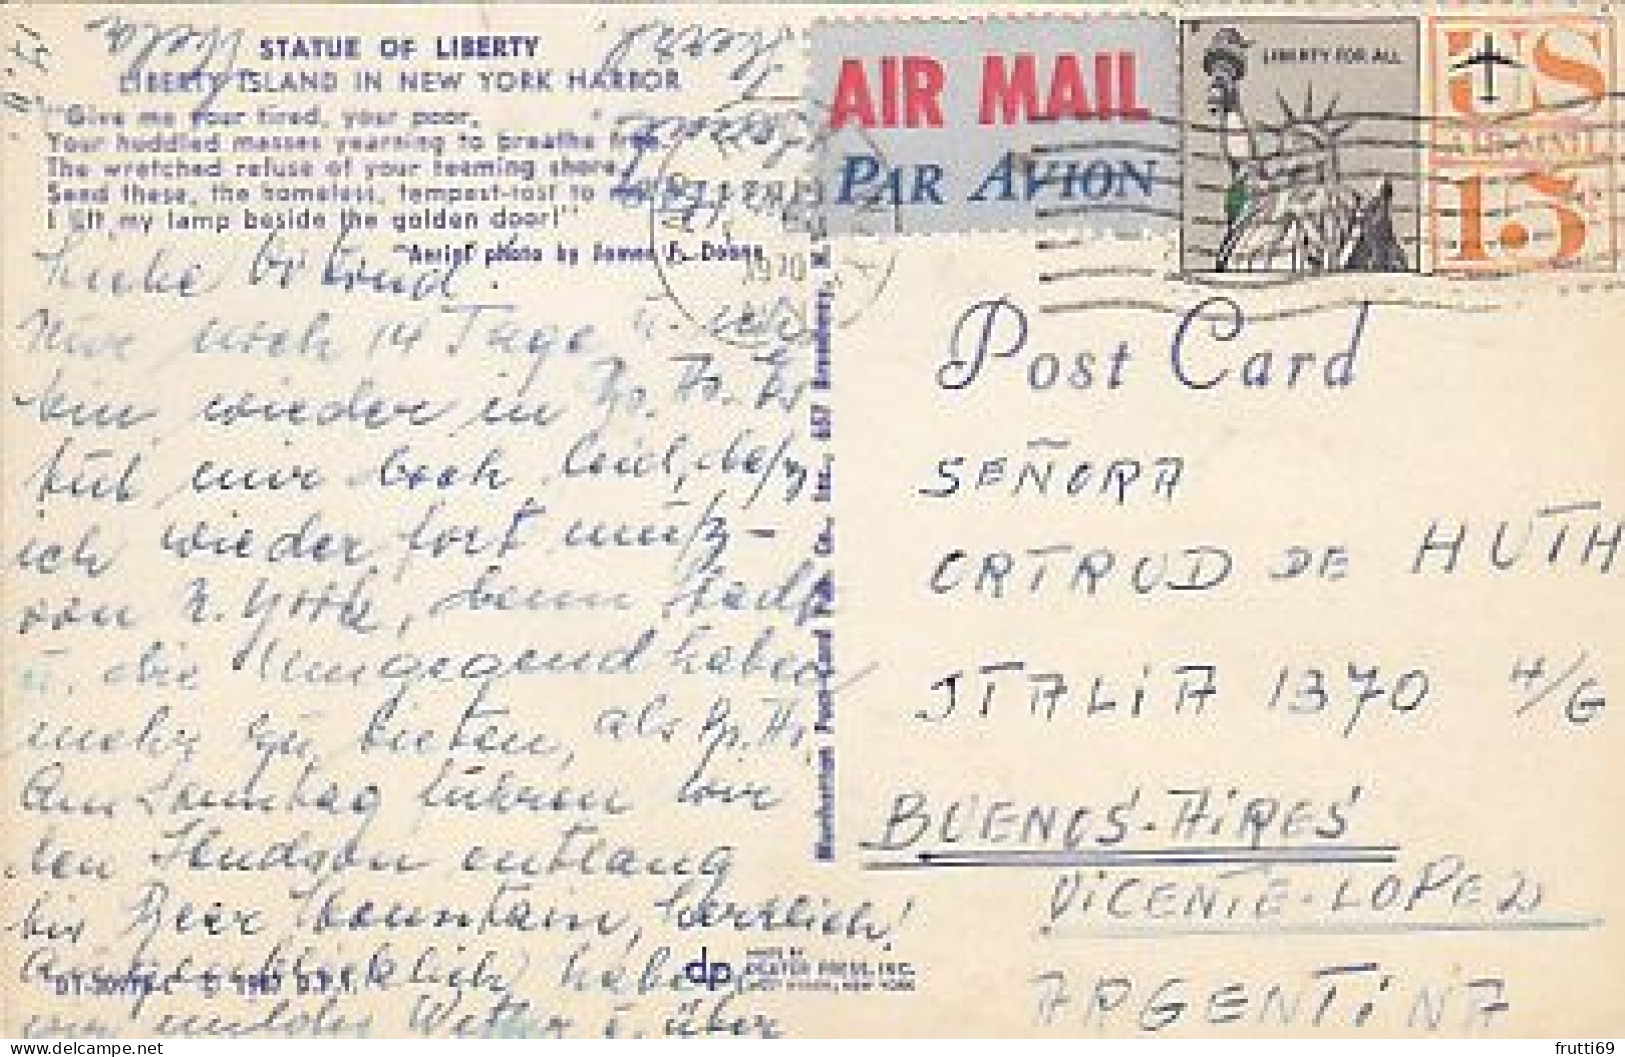 STATUE OF LIBERTY
LIBERTY ISLAND IN NEW YORK HARBOR
"Give me your tired, your poor,
Your huddled masses yearning to breathe free.
The wretched refuse of your teeming shore,
Send these, the homeless, tempest-tost to
I lift my lamp beside the golden door!"
"Aerial photo by James F. Doane
Liebe Ortrud!
Nur noch 14 Tage u. ich
bin wieder in Bs. As. Es
tut mir doch leid, daß
ich wieder fort muß -
von N. York, denn Stadt
u. die Umgegend haben
mehr zu bieten, als Bs. As,
Am Sonntag fuhren wir
den Hudson entlang
bis Bear Mountain, herrlich!
Augenblicklich haben
wir mildes Wetter u. über
DT-30978-C © 1967 D.P.I.
dp
MADE BY
DEXTER PRESS, INC.
WEST NYACK, NEW YORK
Manhattan Post Card Pub. Co., Inc., 657 Broadway, N.
AIR MAIL
PAR AVION
1970
LIBERTY FOR ALL
US
AIR MAIL
15c
Post Card
SEÑORA
ORTRUD DE HUTH
ITALIA 1370 H/G
BUENOS-AIRES
VICENTE-LOPEZ
ARGENTINA
frutti69